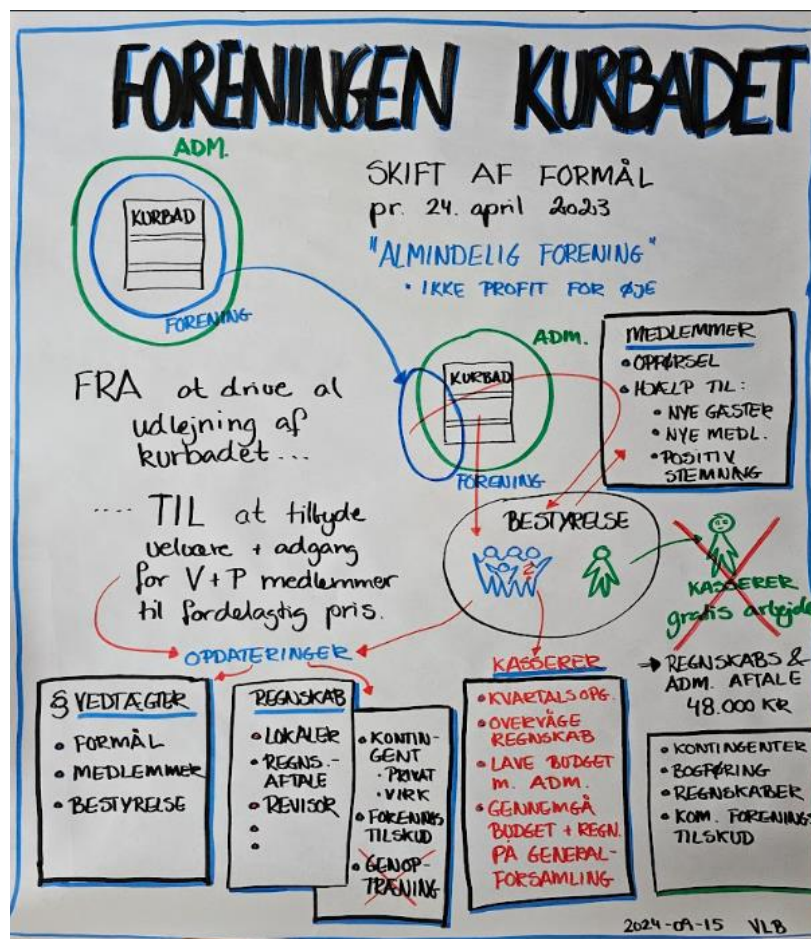 FORENINGEN KURBADET
ADM.
KURBAD
FORENING
SKIFT AF FORMÅL
pr. 24. april 2023
"ALMINDELIG FORENING"
• IKKE PROFIT FOR ØJE
FRA at drive al
udlejning af
kurbadet...
.... TIL at tilbyde
velvære + adgang
for V+P medlemmer
til fordelagtig pris.
ADM.
KURBAD
FORENING
MEDLEMMER
• OPFØRSEL
• HJÆLP TIL:
• NYE GÆSTER
• NYE MEDL.
• POSITIV
STEMNING
BESTYRELSE
KASSERER
gratis arbejde
OPDATERINGER
§ VEDTÆGTER
• FORMÅL
• MEDLEMMER
• BESTYRELSE
REGNSKAB
• LOKALER
• REGNS.-
AFTALE
• REVISOR
•
•
• KONTIN-
GENT
• PRIVAT
• VIRK
• FORENINGS
TILSKUD
• GENOP-
TRÆNING
KASSERER
• KVARTALSOPG.
• OVERVÅGE
REGNSKAB
• LAVE BUDGET
m. ADM.
• GENNEMGÅ
BUDGET + REGN.
PÅ GENERAL-
FORSAMLING
→ REGNSKABS &
ADM. AFTALE
48.000 KR
• KONTINGENTER
• BOGFØRING
• REGNSKABER
• KOM. FORENINGS
TILSKUD
2024-09-15 VLB